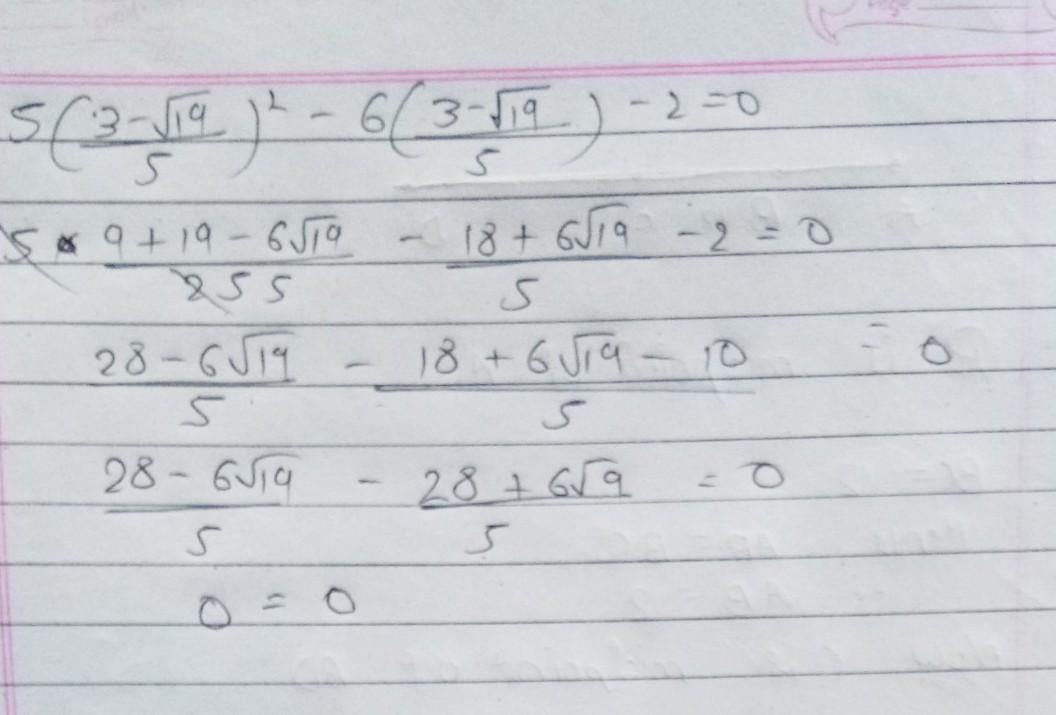 5(3-√19/5)² - 6(3-√19/5) - 2 = 0
5 9+19-6√19/255 - 18+6√19/5 - 2 = 0
28-6√19/5 - 18+6√19-10/5 = 0
28-6√19/5 - 28+6√9/5 = 0
0 = 0